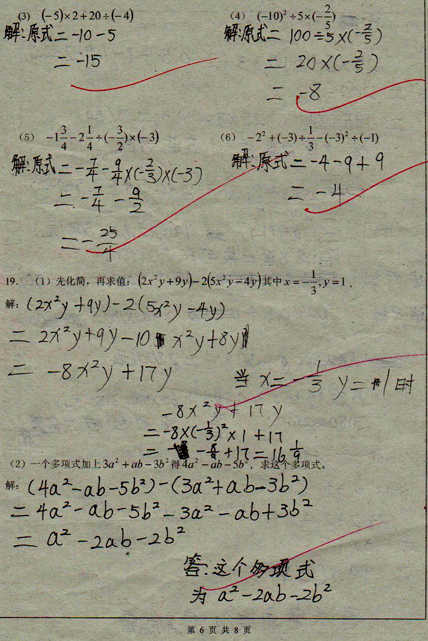 (3) (−5)×2+20÷(−4)
解:原式=-10-5
=-15
(4) (−10)²÷5×(−2/5)
解:原式=100÷5×(-2/5)
=20×(-2/5)
=-8
(5) −1 3/4−2 1/4÷(−3/2)×(−3)
解:原式=-7/4-9/4×(-2/3)×(-3)
=-7/4-9/2
=-25/4
(6) −2²+(−3)÷1/3−(−3)²÷(−1)
解:原式=-4-9+9
=-4
19. (1) 先化简,再求值: (2x²y+9y)−2(5x²y−4y)其中x=−1/3,y=1.
解: (2x²y+9y)-2(5x²y-4y)
=2x²y+9y-10x²y+8y
=-8x²y+17y 当x=-1/3 y=1时
-8x²y+17y
=-8×(-1/3)²×1+17
=-8/9+17=16 1/9
(2) 一个多项式加上3a²+ab−3b²得4a²−ab−5b²,求这个多项式。
解: (4a²-ab-5b²)-(3a²+ab-3b²)
=4a²-ab-5b²-3a²-ab+3b²
=a²-2ab-2b²
答:这个多项式
为a²-2ab-2b²
第 6 页 共 8 页